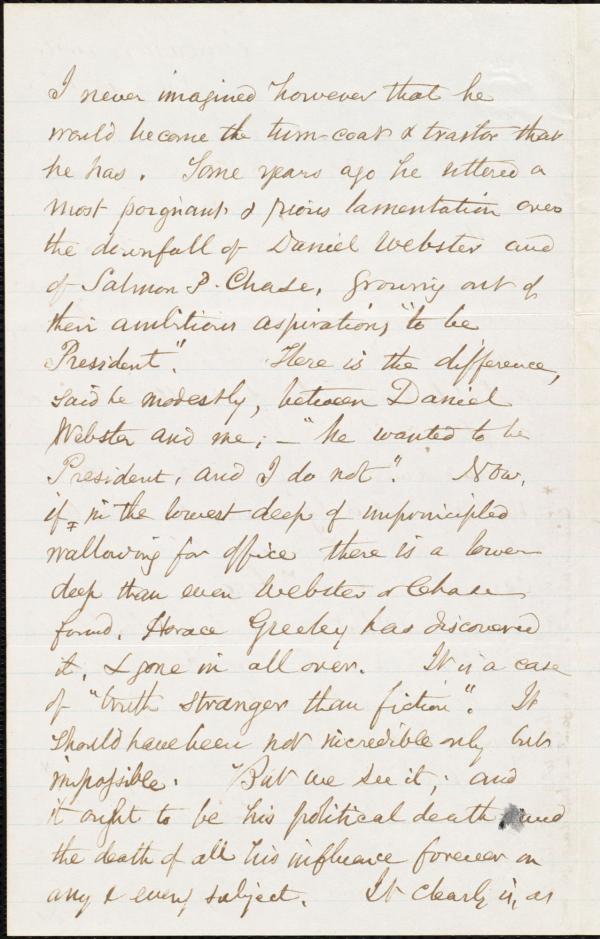 I never imagined however that he
would become the turn-coat & traitor that
he has. Some years ago he uttered a
most poignant & pious lamentation over
the downfall of Daniel Webster and
of Salmon P. Chase, growing out of
their ambitious aspirations "to be
President". Here is the difference,
said he modestly, between Daniel
Webster and me; – "he wanted to be
President, and I do not". Now,
if, in the lowest deep of unprincipled
wallowing for office there is a lower
deep than even Webster or Chase
found, Horace Greeley has discovered
it, & gone in all over. It is a case
of "truth stranger than fiction". It
should have been not incredible only but
impossible. But we see it; and
it ought to be his political death and
the death of all his influence forever on
any & every subject. It clearly is, as